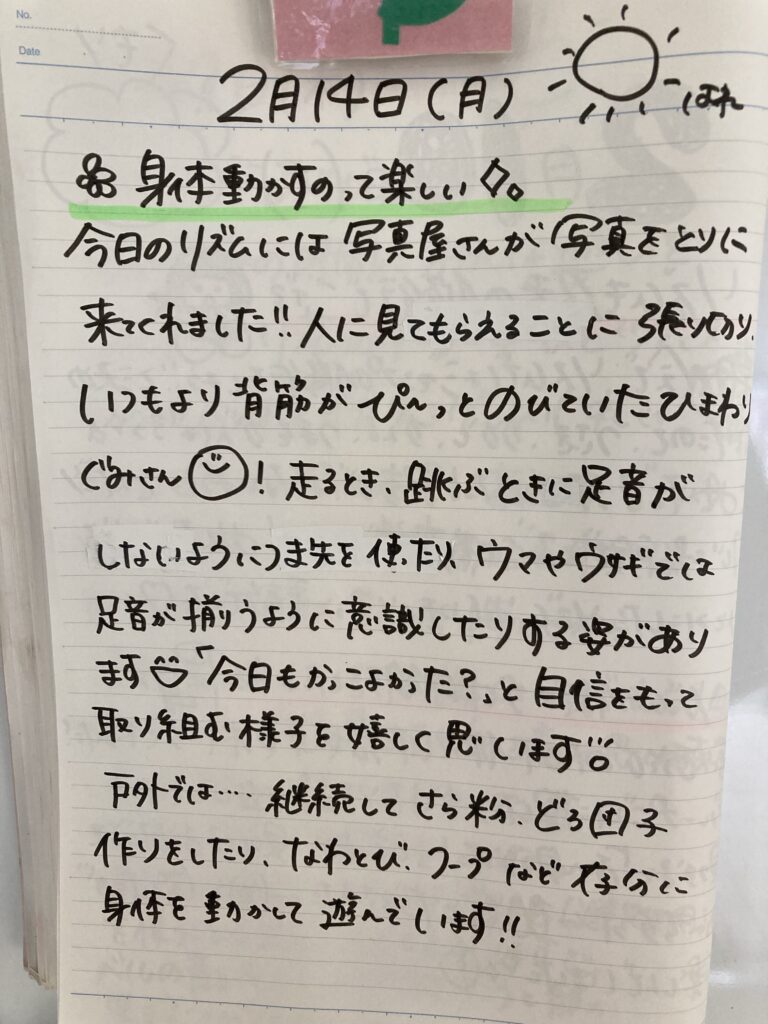 No.
Date
2月14日(月) はれ
身体動かすのって楽しい◇。
今日のリズムには写真屋さんが写真をとりに
来てくれました!!人に見てもらえることに張り切り、
いつもより背筋がぴ〜っとのびていたひまわり
ぐみさん!走るとき、跳ぶときに足音が
しないようにつま先を使ったり、ウマやウサギでは
足音が揃うように意識したりする姿があり
ます「今日もかっこよかった?」と自信をもって
取り組む様子を嬉しく思います
戸外では…継続してさら粉、どろ団子
作りをしたり、なわとび、フープなど存分に
身体を動かして遊んでいます!!